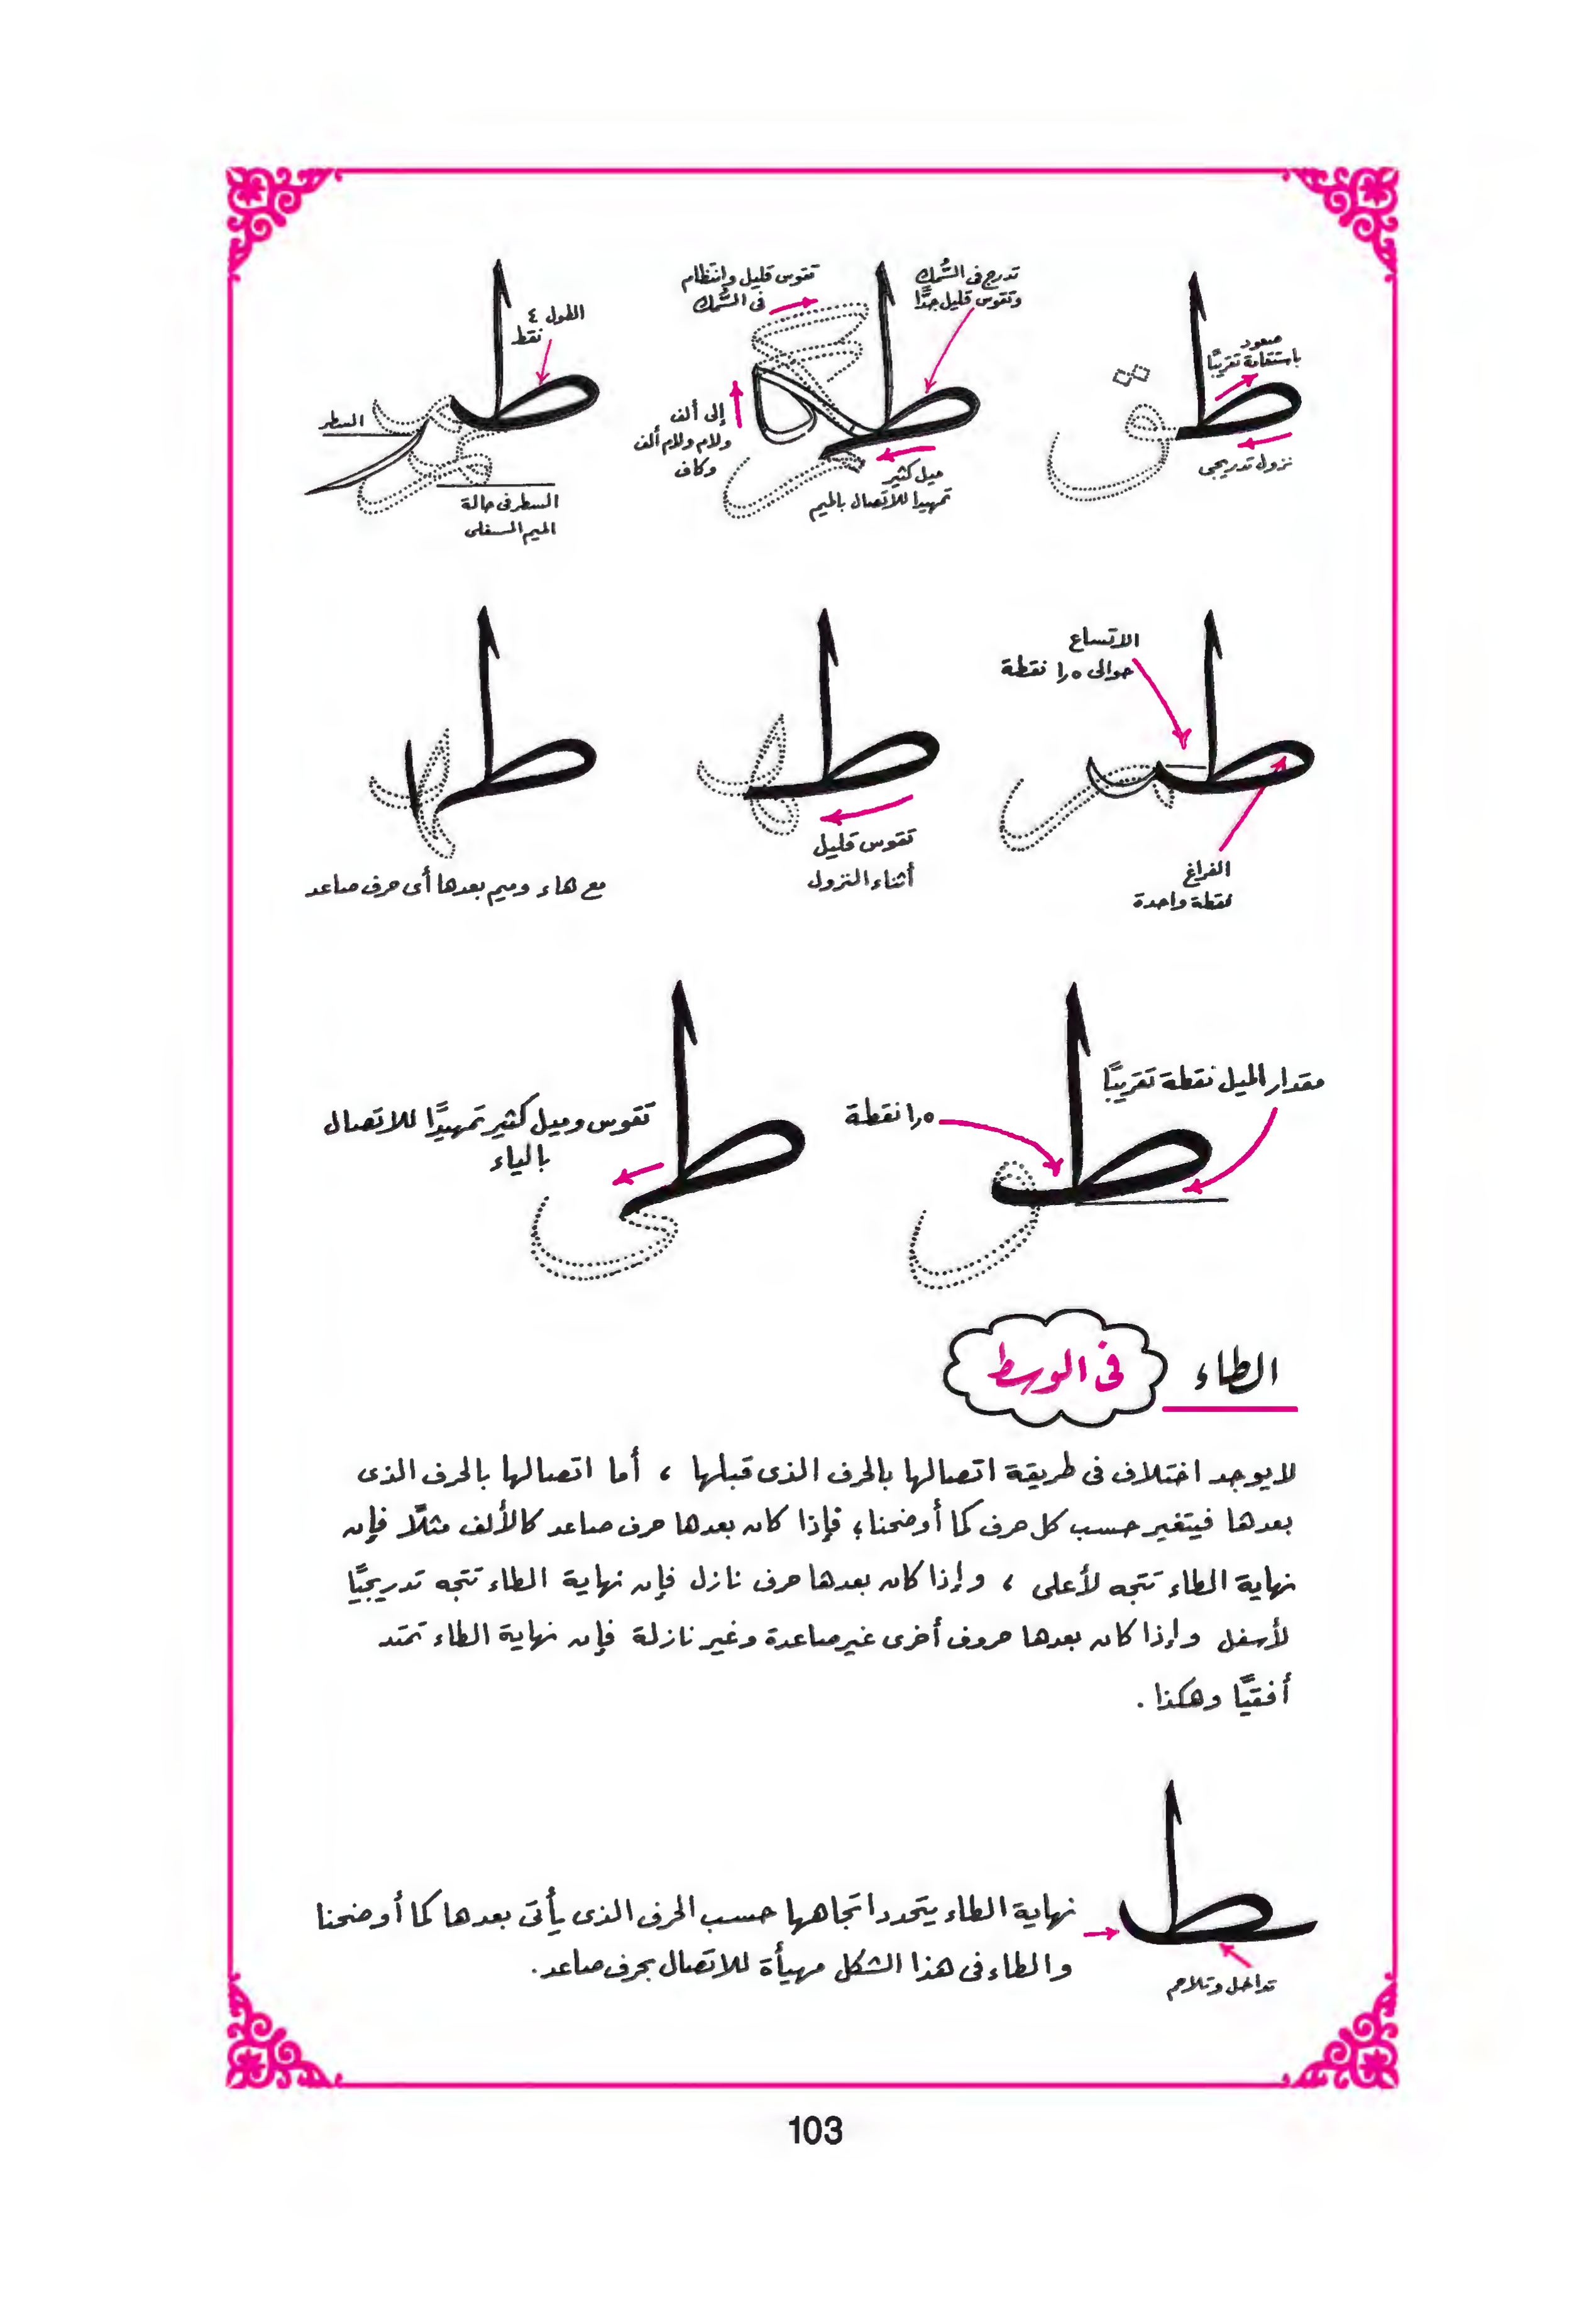 صعود
باستقامة تقريبًا
نزول تدريجى
تدرج فى السُّمك
وتقوس قليل جدًّا
تقوس قليل وانتظام
فى السُّمك
إلى ألف
ولام ولام ألف
وكاف
ميل كثير
تمهيدا للاتصال بالميم
الطول ٤
نقط
السطر
السطر فى حالة
الميم السفلى
الاتساع
حوالى ١٫٥ نقطة
الفراغ
نقطة واحدة
تقوس قليل
أثناء النزول
مع هاء وميم بعدها أى حرف صاعد
مقدار الميل نقطة تقريبًا
١٫٥ نقطة
تقوس وميل كثير تمهيدًا للاتصال
بالياء
الطاء فى الوسط
لا يوجد اختلاف فى طريقة اتصالها بالحرف الذى قبلها ، أما اتصالها بالحرف الذى
بعدها فيتغير حسب كل حرف كما أوضحنا ؛ فإذا كان بعدها حرف صاعد كالألف مثلًا فإن
نهاية الطاء تتجه لأعلى ، وإذا كان بعدها حرف نازل فإن نهاية الطاء تتجه تدريجيًّا
لأسفل وإذا كان بعدها حروف أخرى غير صاعدة وغير نازلة فإن نهاية الطاء تمتد
أفقيًّا وهكذا .
نهاية الطاء يتحدد اتجاهها حسب الحرف الذى يأتى بعدها كما أوضحنا
والطاء فى هذا الشكل مهيأة للاتصال بحرف صاعد.
تداخل وتلاحم
103